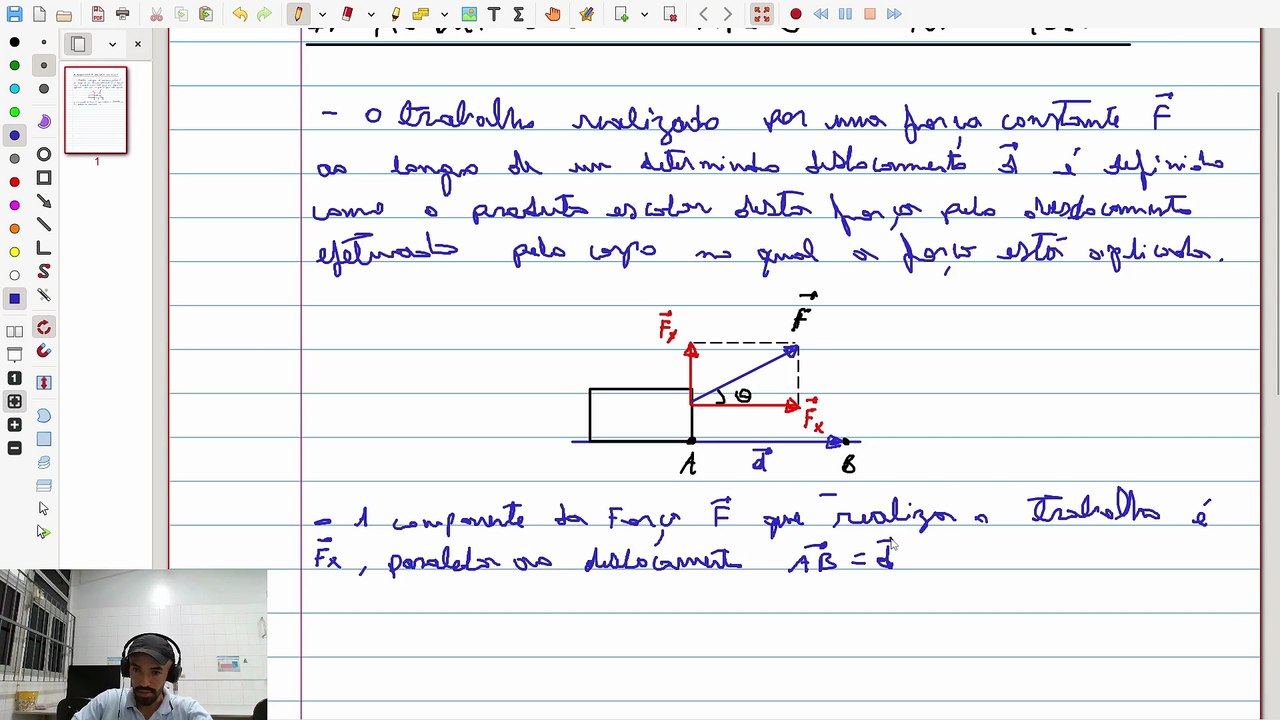 - O trabalho realizado por uma força constante F⃗
ao longo de um determinado deslocamento d⃗ é definido
como o produto escalar desta força pelo deslocamento
efetuado pelo corpo no qual a força está aplicada.
F⃗
F⃗y
θ
F⃗x
A d⃗ B
- A componente da Força F⃗ que realiza o trabalho é
F⃗x, paralela ao deslocamento AB⃗ = d⃗
1